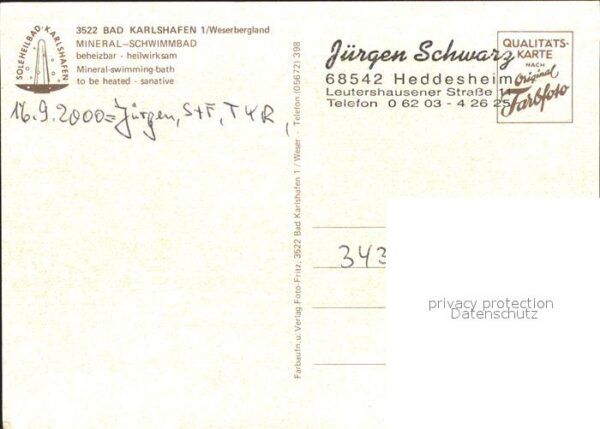 SOLEHEILBAD KARLSHAFEN
3522 BAD KARLSHAFEN 1/Weserbergland
MINERAL-SCHWIMMBAD
beheizbar - heilwirksam
Mineral-swimming-bath
to be heated - sanative
16.9.2000=Jürgen, S+F, T+R,
Farbaufn.u.Verlag Foto-Fritz, 3522 Bad Karlshafen 1 / Weser - Telefon (05672) 398
Jürgen Schwarz
68542 Heddesheim
Leutershausener Straße
Telefon 0 62 03 - 4 26 25
QUALITÄTS-
KARTE
NACH
Original
Farbfoto
343
privacy protection
Datenschutz